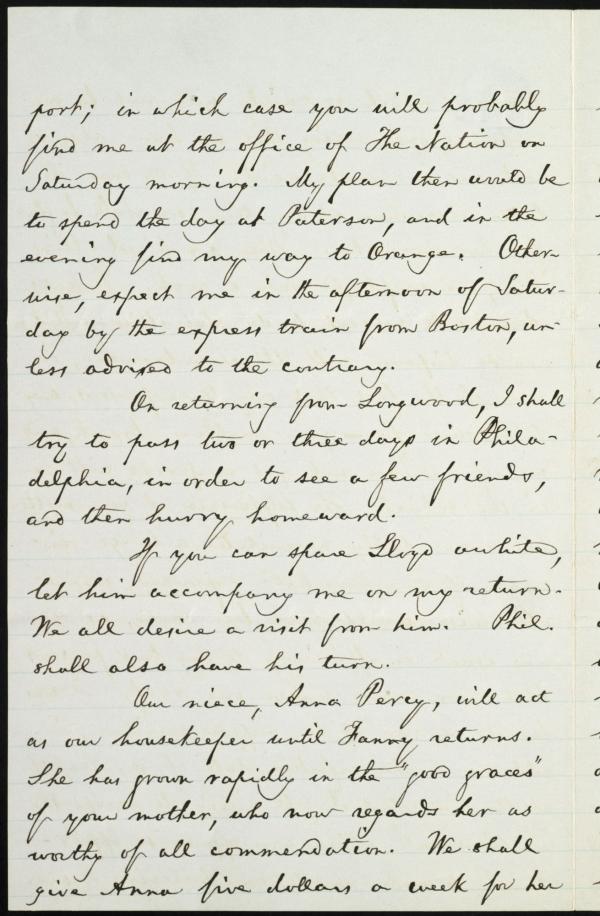 port; in which case you will probably
find me at the office of The Nation on
Saturday morning. My plan then would be
to spend the day at Paterson, and in the
evening find my way to Orange. Other-
wise, expect me in the afternoon of Satur-
day by the express train from Boston, un-
less advised to the contrary.
On returning from Longwood, I shall
try to pass two or three days in Phila-
delphia, in order to see a few friends,
and then hurry homeward.
If you can spare Lloyd awhile,
let him accompany me on my return.
We all desire a visit from him. Phil.
shall also have his turn.
Our niece, Anna Percy, will act
as our housekeeper until Fanny returns.
She has grown rapidly in the "good graces"
of your mother, who now regards her as
worthy of all commendation. We shall
give Anna five dollars a week for her